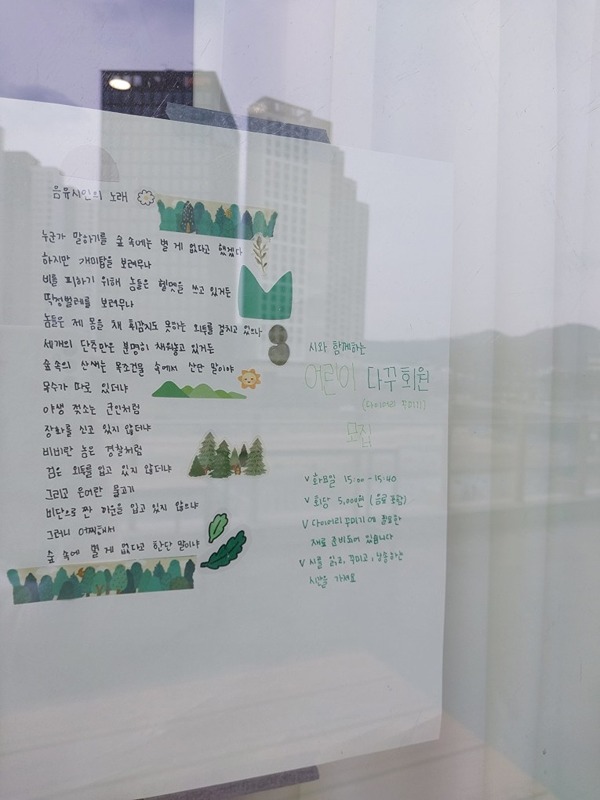 음유시인의 노래
누군가 말하기를 숲 속에는 별 게 없다고 했겠다
하지만 개미탑을 보려무나
비를 피하기 위해 놈들은 헬멧을 쓰고 있거든
딱정벌레를 보려무나
놈들은 제 몸을 채 휘감지도 못하는 외투를 걸치고 있으나
세개의 단추만은 분명히 채워놓고 있거든
숲 속의 산새는 목조건물 속에서 산단 말이야
목수가 따로 있더냐
야생 젖소는 군인처럼
장화를 신고 있지 않더냐
비비란 놈은 경찰처럼
검은 외투를 입고 있지 않더냐
그리고 은어란 물고기
비단으로 짠 옷을 입고 있지 않으냐
그러니 어찌해서
숲 속에 별 게 없다고 한단 말이냐
시와 함께하는
어린이 다꾸 회원
(다이어리 꾸미기)
모집
v 화요일 15:00 - 15:40
v 회당 5,000원 (음료 포함)
v 다이어리 꾸미기에 필요한
재료 준비되어 있습니다
v 시를 읽고, 꾸미고, 낭송하는
시간을 가져요